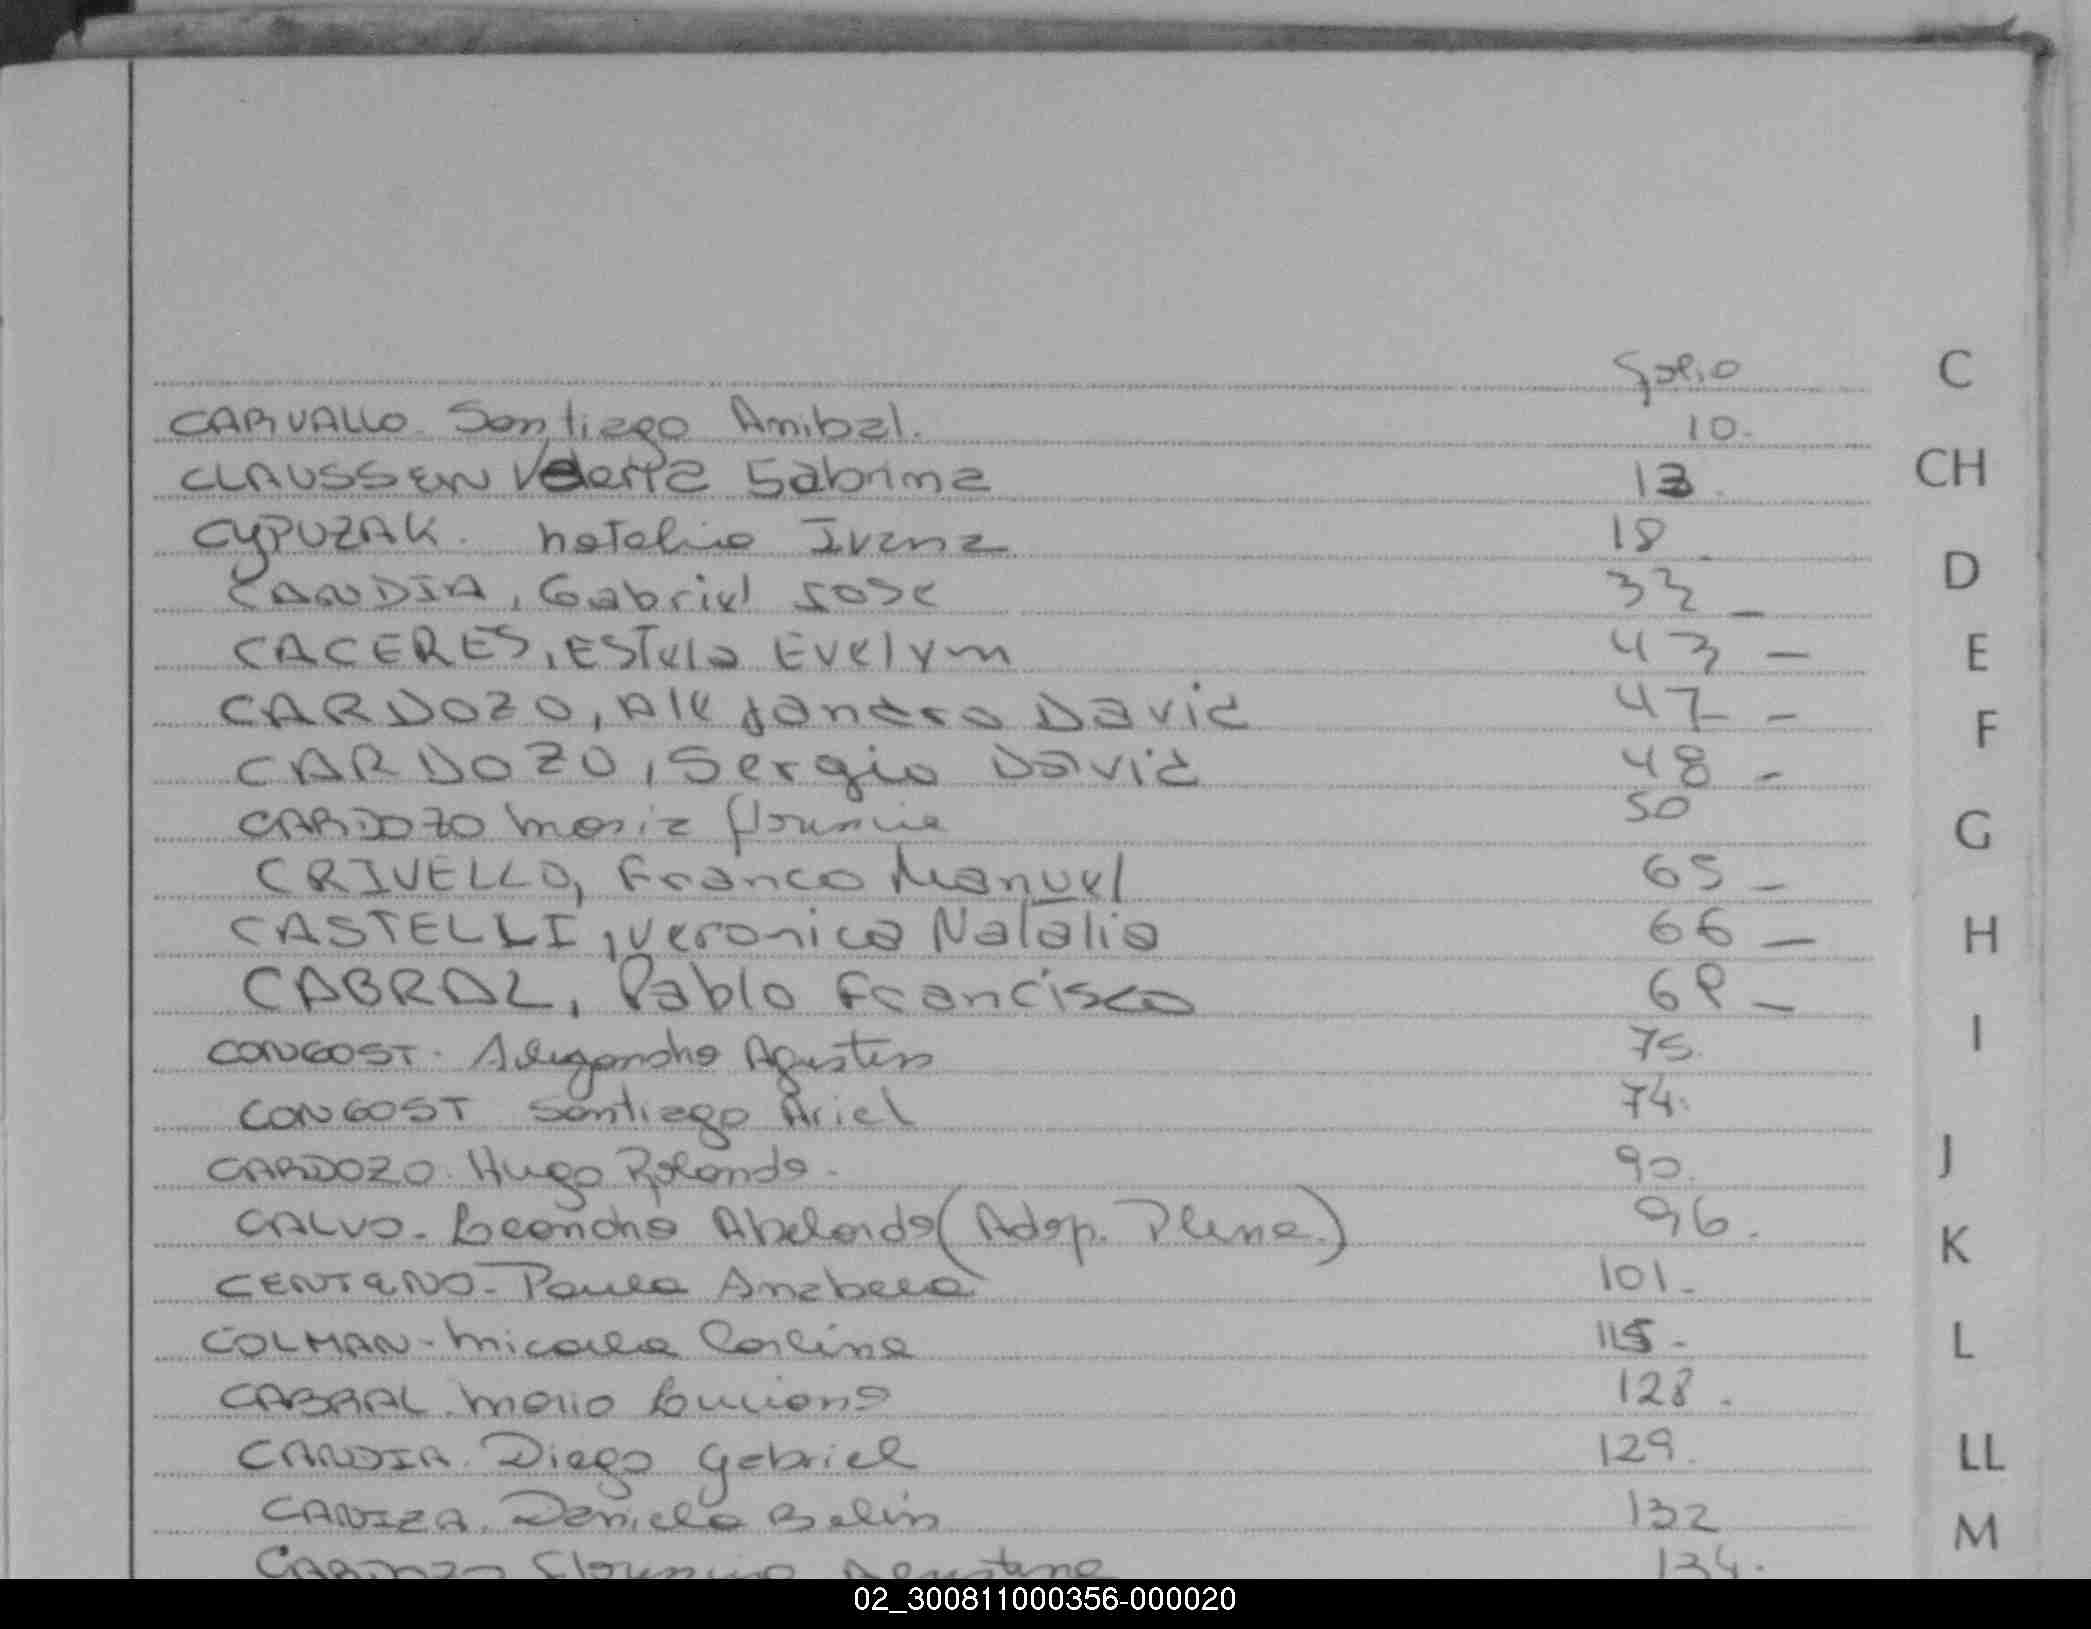 Folio
C
CARVALLO. Santiago Anibal. 10.
CLAUSSEN Sabrina 13.
CH
CYPUZAK. natalia Ivana 18
D
CANDIA, Gabriel Jose 33 _
CACERES, EStela Evelyn 43 -
E
CARDOZO, Alejandro David 47 -
F
CARDOZO, Sergio David 48 -
CARDOZO maria florencia 50
G
CRIVELLO, Franco Manuel 65 _
CASTELLI, veronica Natalia 66 -
H
CABRAL, Pablo Francisco 68 -
I
CONGOST. Alejandro Agustin 75.
CONGOST Santiago Ariel 74.
CARDOZO. Hugo Rolando. 90.
J
CALVO. Leandro Abelardo (Adop. Plena.) 96.
K
CENTENO. Paula Anabela 101.
COLMAN. micaela 115.
L
CABRAL. maria Luciana 128.
CANDIA. Diego gabriel 129.
LL
CANIZA. Daniela Belin 132
M
CARDOZO Florencia Agustina 134.
02_300811000356-000020